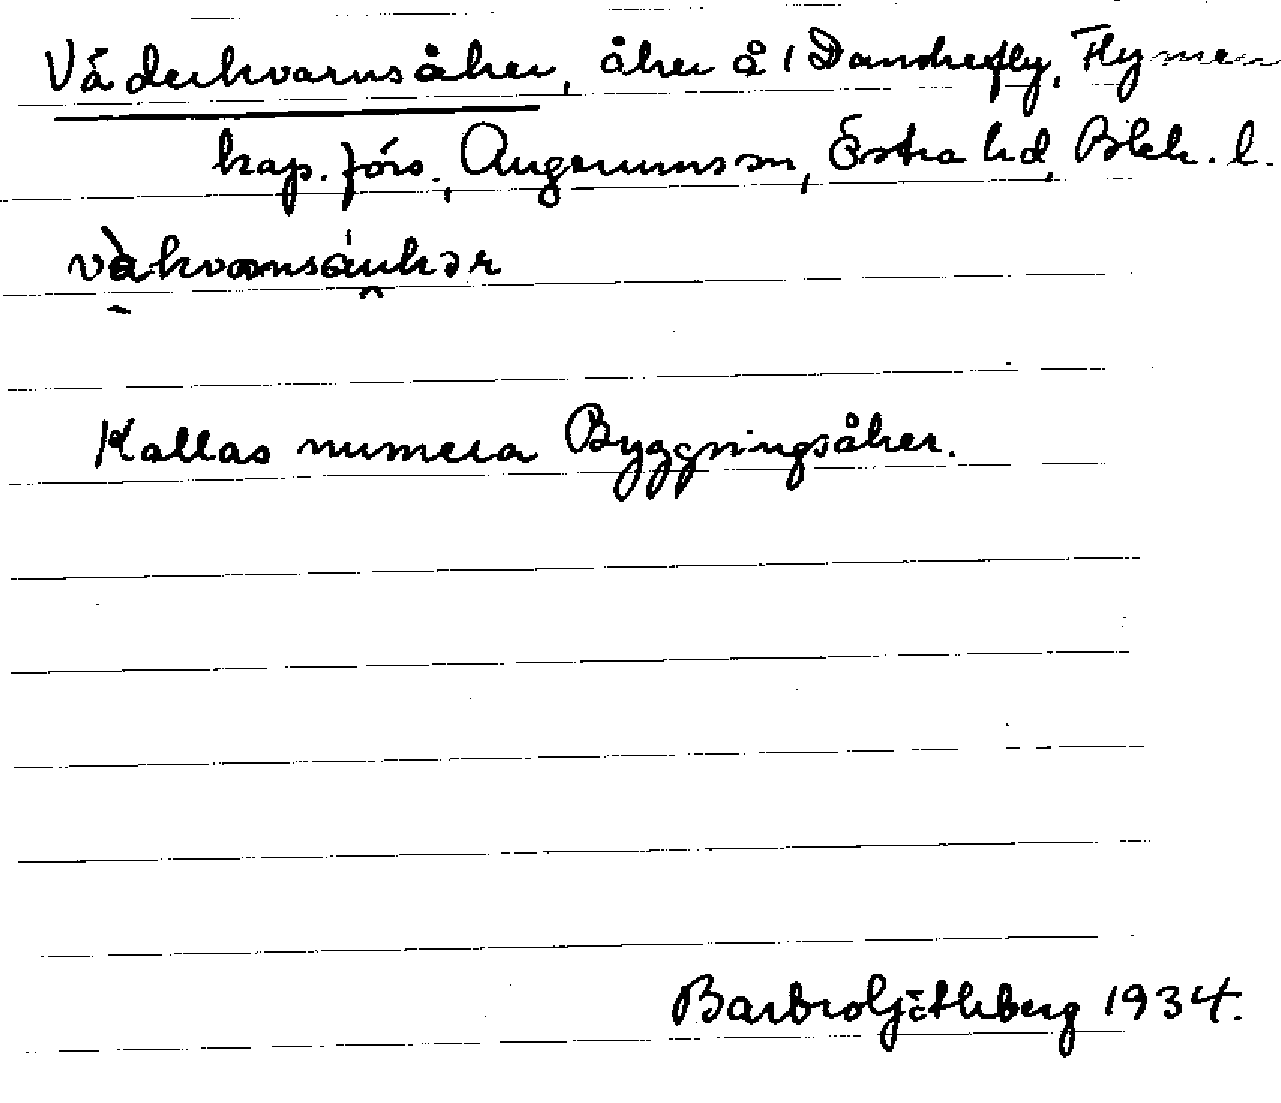 Väderkvarnsåker, åker å 1 Danskefly, Flymen
kap. förs., Augerums sn, Östra hd, Blek. l.
Kallas numera Byggningsåker.
Barbro Götlberg 1934.